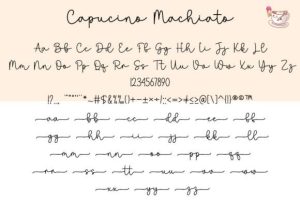 Capucino Machiato
Aa Bb Cc Dd Ee Ff Gg Hh Ii Jj Kk Ll
Mm Nn Oo Pp Qq Rr Ss Tt Uu Vv Ww Xx Yy Zz
1234567890
aa bb cc dd ee ff
gg hh ii jj kk ll
mm nn oo pp qq
rr ss tt uu vv ww
xx yy zz